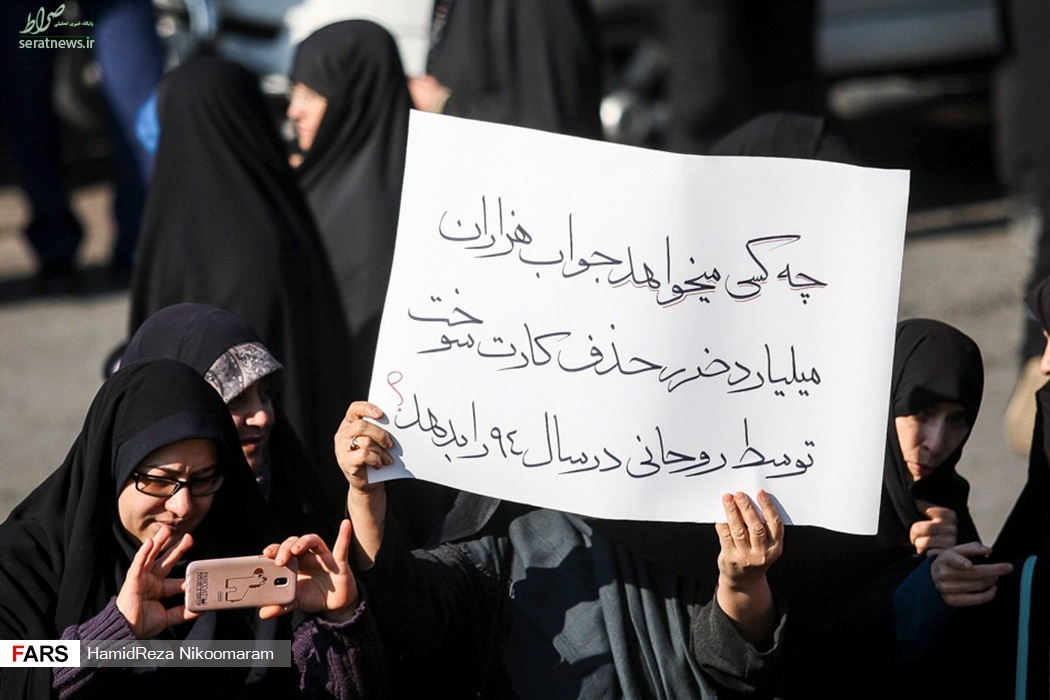 صراط
پایگاه خبری تحلیلی
seratnews.ir
چه کسی میخواهد جواب هزاران
میلیارد ضرر حذف کارت سوخت
توسط روحانی در سال ۹٤ را بدهد؟
FARS HamidReza Nikoomaram